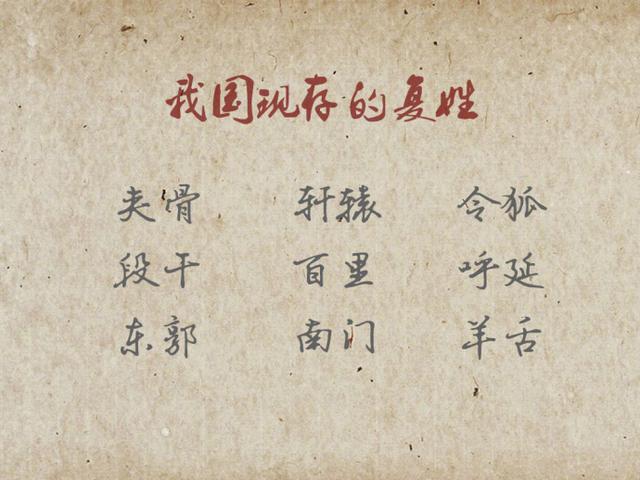 我国现存的复姓
夹骨 轩辕 令狐
段干 百里 呼延
东郭 南门 羊舌